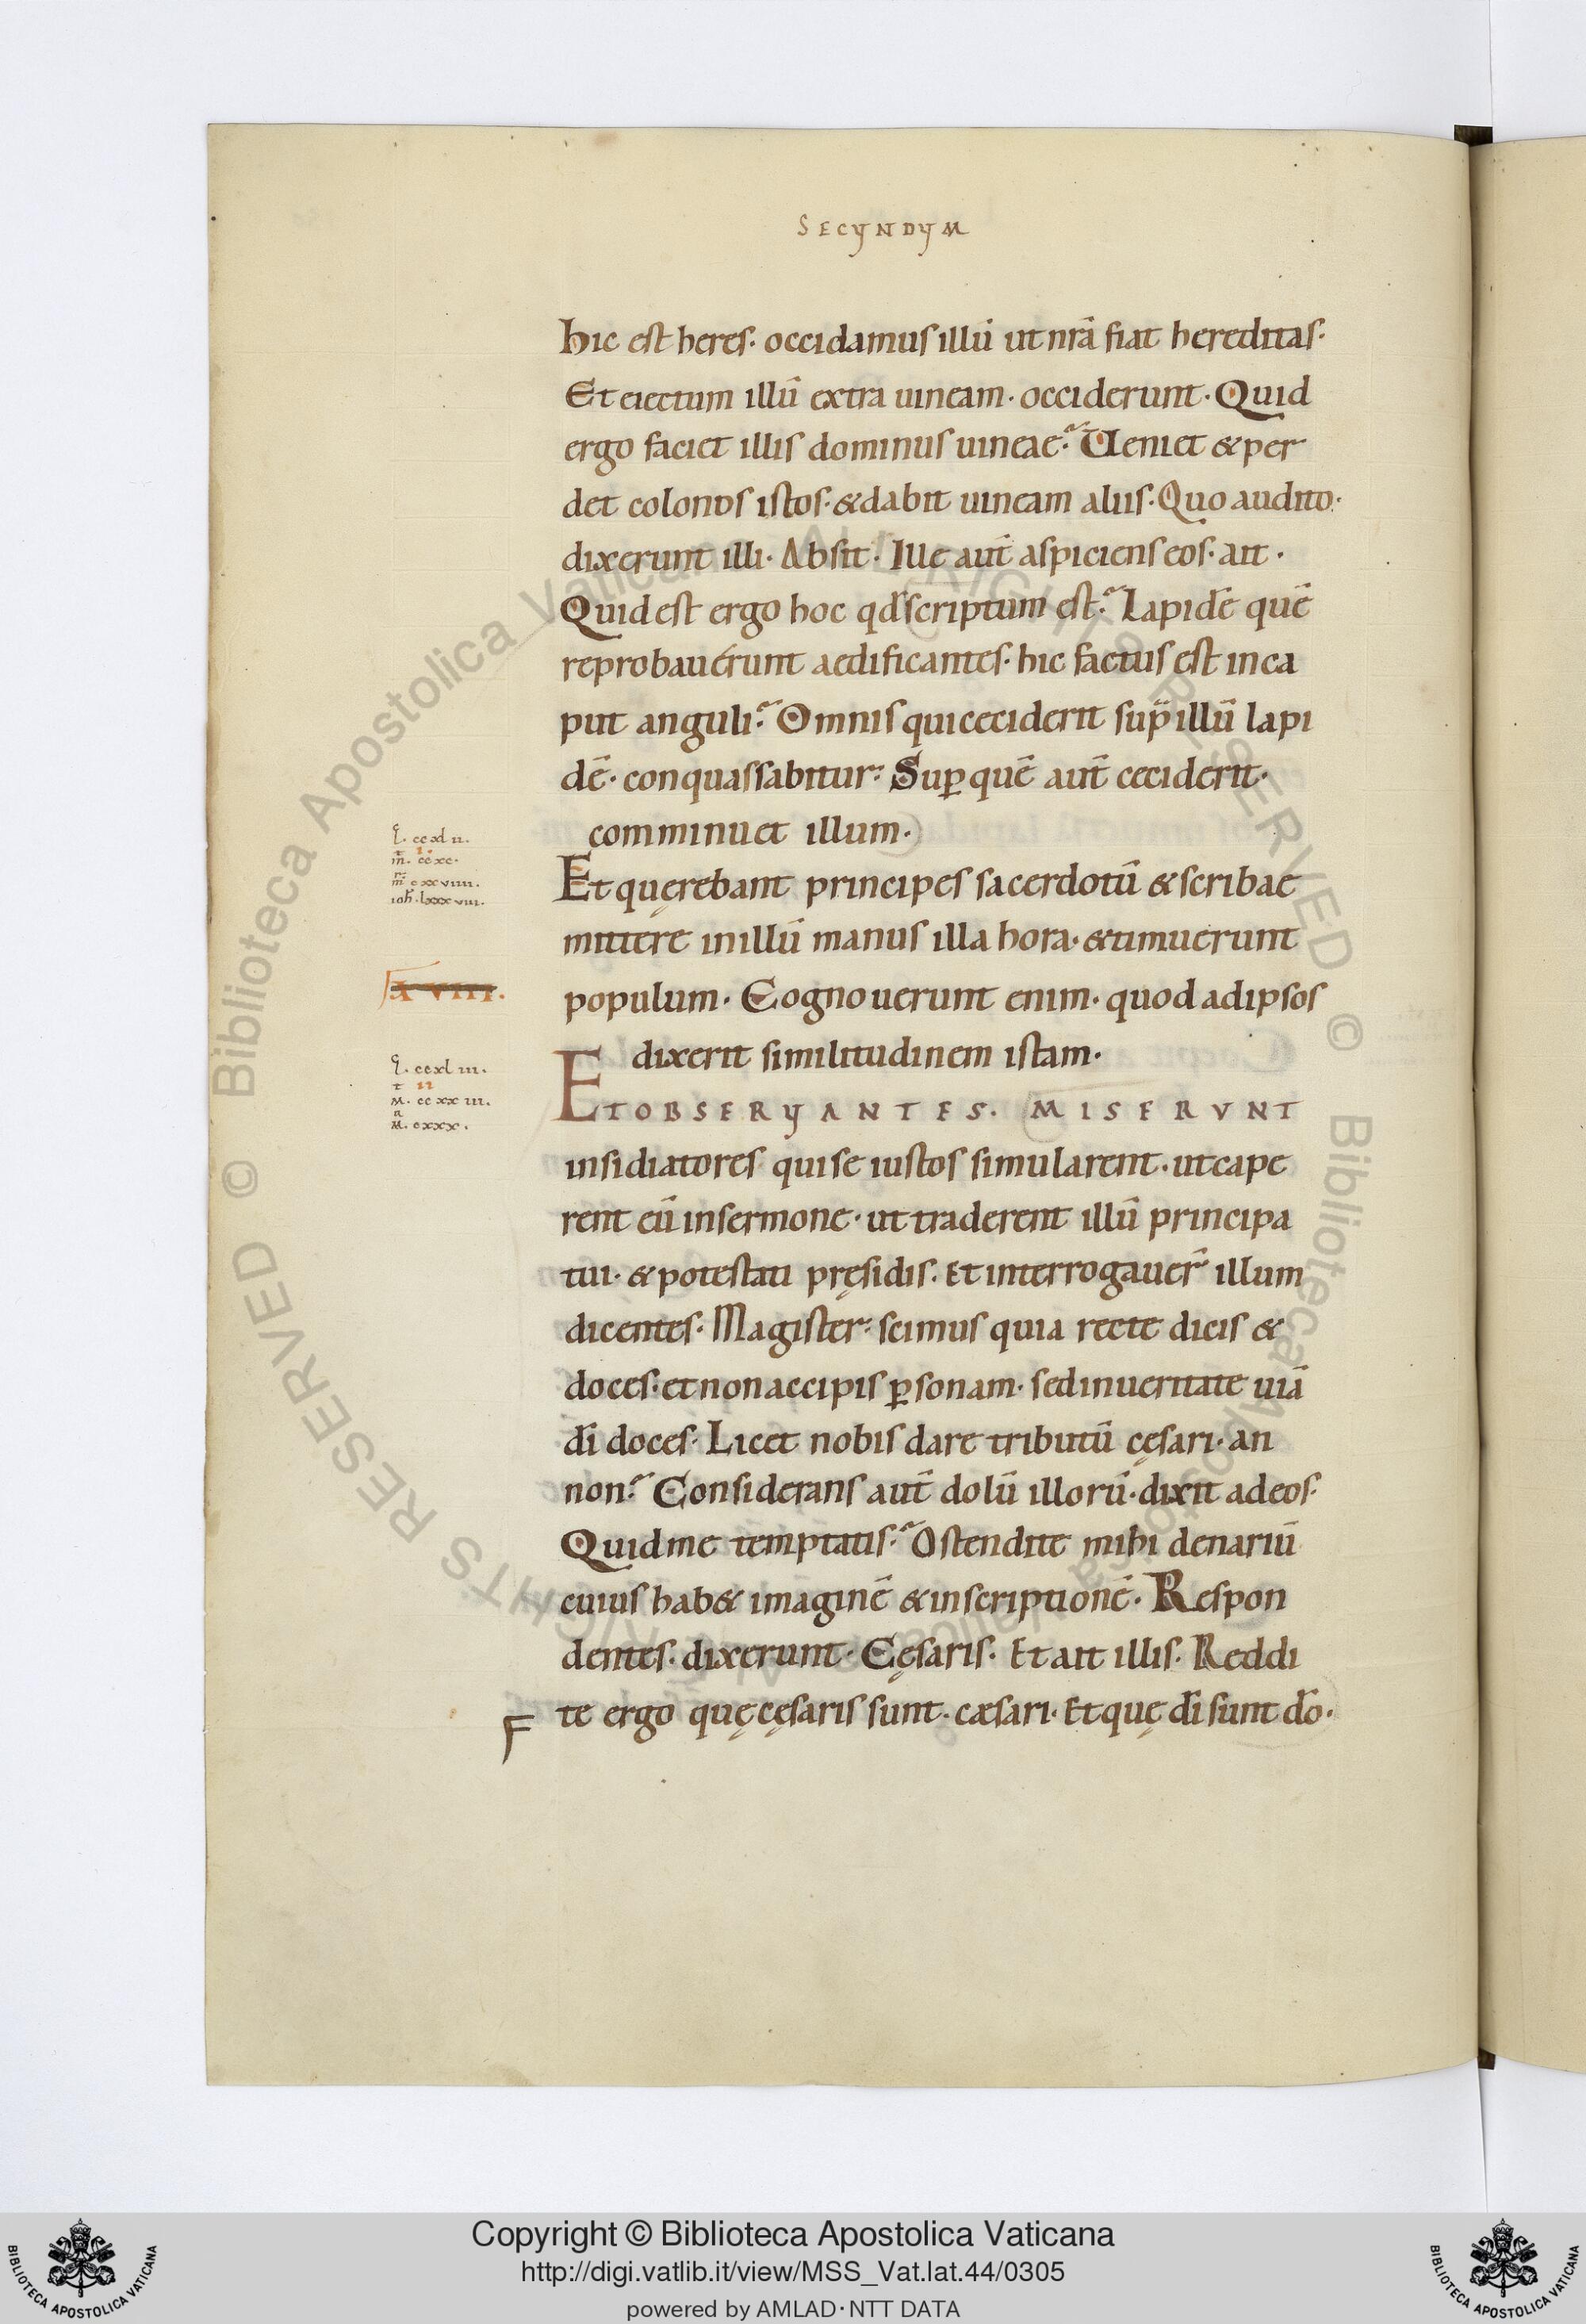 SECUNDUM
hic est heres· occidamus illū ut nr̄a fiat hereditas·
Et eiectum illū extra uineam· occiderunt· Quid
ergo faciet illis dominus uineae? Ueniet & per
det colonos istos· & dabit uineam aliis· Quo audito·
dixerunt illi· Absit· Ille aut̄ aspiciens eos· ait·
Quid est ergo hoc qd̄ scriptum est? Lapidē quē
reprobauerunt aedificantes· hic factus est in ca
put anguli? Omnis qui ceciderit sup̄ illū lapi
dē· conquassabitur: Suꝑ quē aut̄ ceciderit·
comminuet illum·
l. ccxlii.
i.
m̄. ccxc.
m. cxxviiii.
ioh̄. lxxxviii.
Et quęrebant principes sacerdotū & scribae
mittere in illū manus illa hora· & timuerunt
populum· Cognouerunt enim· quod ad ipsos
XVIII.
dixerit similitudinem istam·
l. ccxliii.
ii
M. ccxxiii.
M. cxxx.
ET OBSERUANTES· MISERVNT
insidiatores qui se iustos simularent· ut cape
rent eū in sermone· ut traderent illū principa
tui· & potestati pręsidis· Et interrogauer̄ illum
dicentes· Magister: scimus quia recte dicis &
doces· et non accipis ꝑsonam· sed in ueritate uiā
dī doces· Licet nobis dare tributū cęsari· an
non? Considerans aut̄ dolū illorū· dixit ad eos·
Quid me temptatis? Ostendite mihi denariū
cuius hab& imaginē & inscriptionē· Respon
dentes· dixerunt· Cęsaris· Et ait illis· Reddi
te ergo quę cęsaris sunt· cæsari· Et quę dī sunt dō·
Copyright © Biblioteca Apostolica Vaticana
http://digi.vatlib.it/view/MSS_Vat.lat.44/0305
powered by AMLAD·NTT DATA
BIBLIOTECA APOSTOLICA VATICANA
BIBLIOTECA APOSTOLICA VATICANA
© Biblioteca Apostolica Vaticana ALL RIGHTS RESERVED © Biblioteca Apostolica Vaticana ALL RIGHTS RESERVED